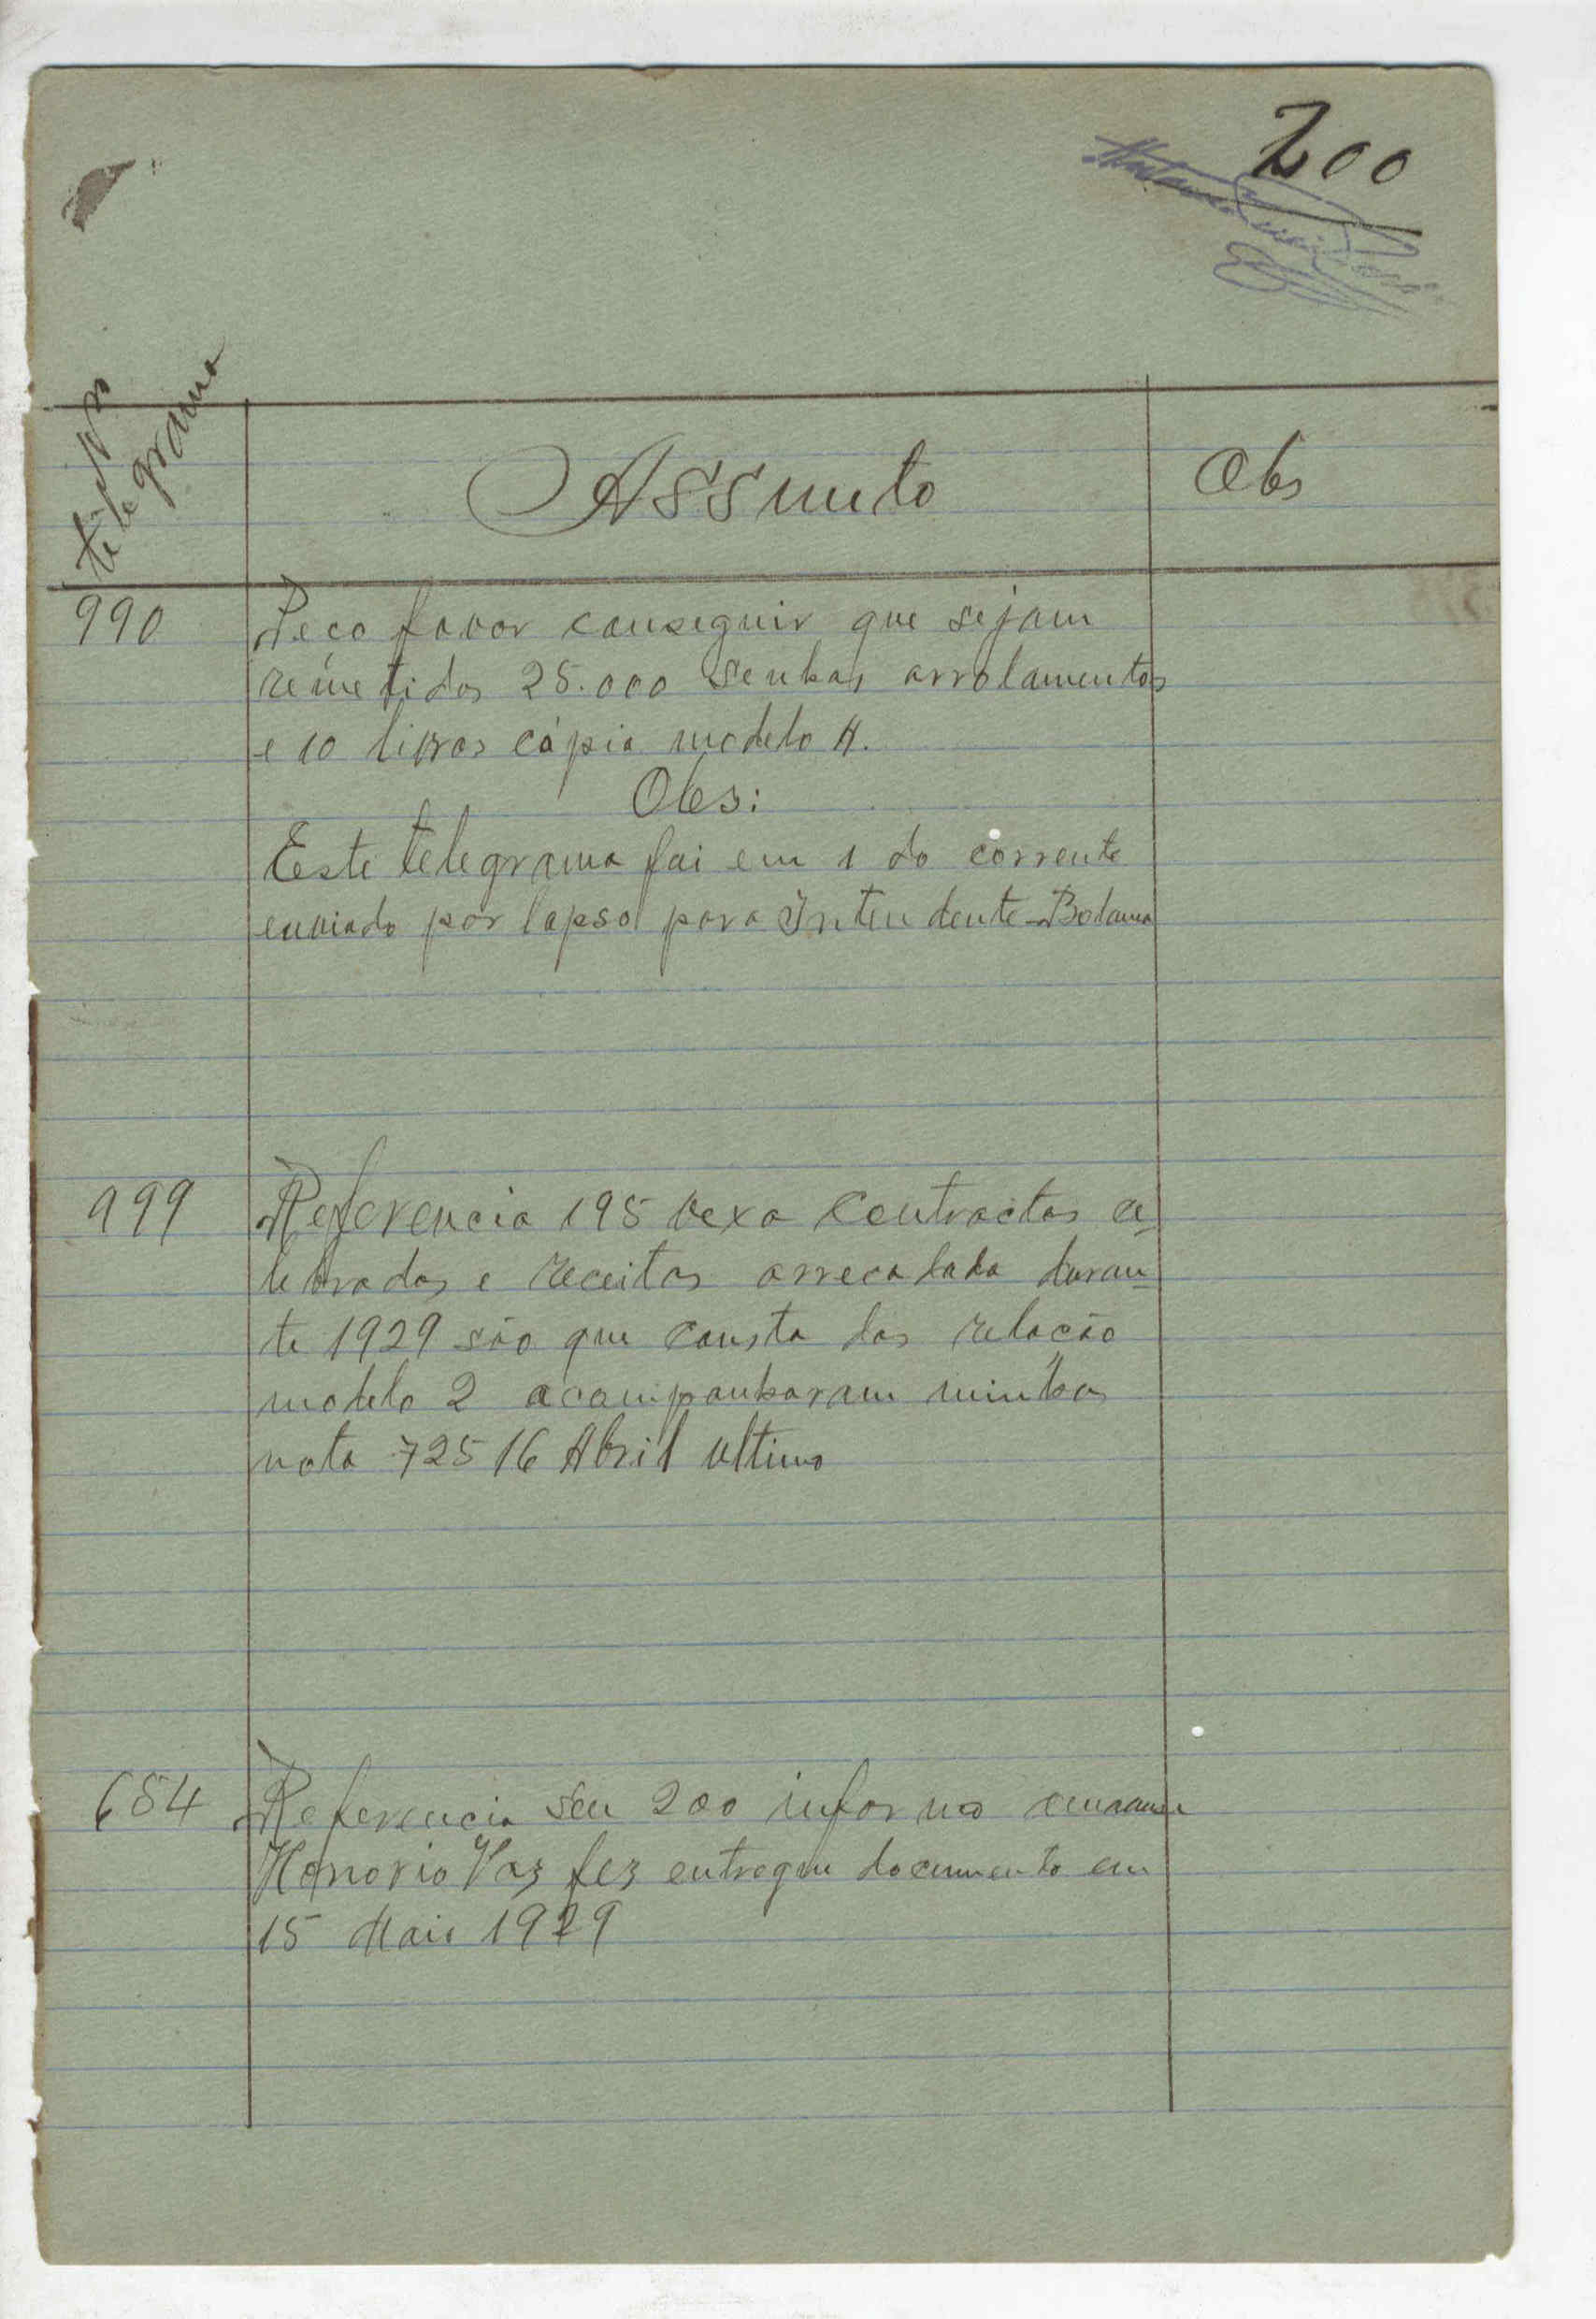 200
Nº
telegrama
Assunto
Obs
990
Peço favor conseguir que sejam
remetidos 25.000 senhas arrolamentos
e 10 livros cópia modelo A.
Obs:
Este telegrama foi em 1 do corrente
enviado por lapso para Intendente-Bolama
999
Referencia 195 vexa contractos ce-
lebrados e receitas arrecadada duran-
te 1929 são que consta das relacão
modelo 2 acompanharam minhas
nota 725 16 Abril ultimo
684
Referencia seu 200 informo
Honorio Vaz fez entregue documento em
15 Maio 1929